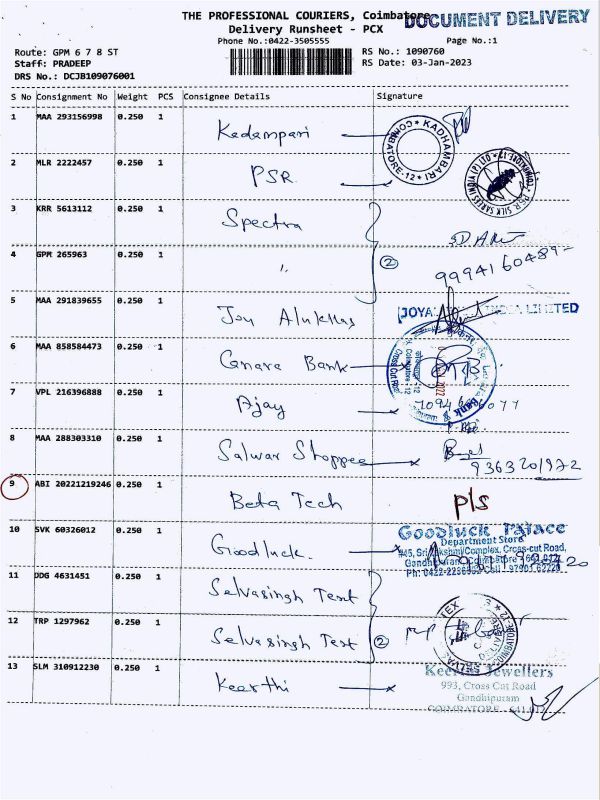 THE PROFESSIONAL COURIERS, Coimbatore
DOCUMENT DELIVERY
Delivery Runsheet - PCX
Phone No.:0422-3505555 Page No.:1
Route: GPM 6 7 8 ST RS No.: 1090760
Staff: PRADEEP RS Date: 03-Jan-2023
DRS No.: DCJB109076001
S No Consignment No Weight PCS Consignee Details Signature
1 MAA 293156998 0.250 1 Kadampari
COIMBATORE-12 * KADHAMBARI *
2 MLR 2222457 0.250 1 PSR
PSR SILK SAREES INDIA (P) LTD
3 KRR 5613112 0.250 1 Spectra
4 GPM 265963 0.250 1 " ②
5 MAA 291839655 0.250 1 Joy Alukkas
INDIA LIMITED
6 MAA 858584473 0.250 1 Canara Bank
7 VPL 216396888 0.250 1 Ajay
8 MAA 288303310 0.250 1 Salwar Shoppee
9363201972
9 ABI 20221219246 0.250 1 Beta Tech P/S
10 SVK 60326012 0.250 1 Goodluck.
Goodluck Palace
Department Store
11 DDG 4631451 0.250 1 Selvasingh Text
12 TRP 1297962 0.250 1 Selvasingh Text ②
13 SLM 310912230 0.250 1 Keerthi
Jewellers
993, Cross Cut Road
Gandhipuram
COIMBATORE - 641 012